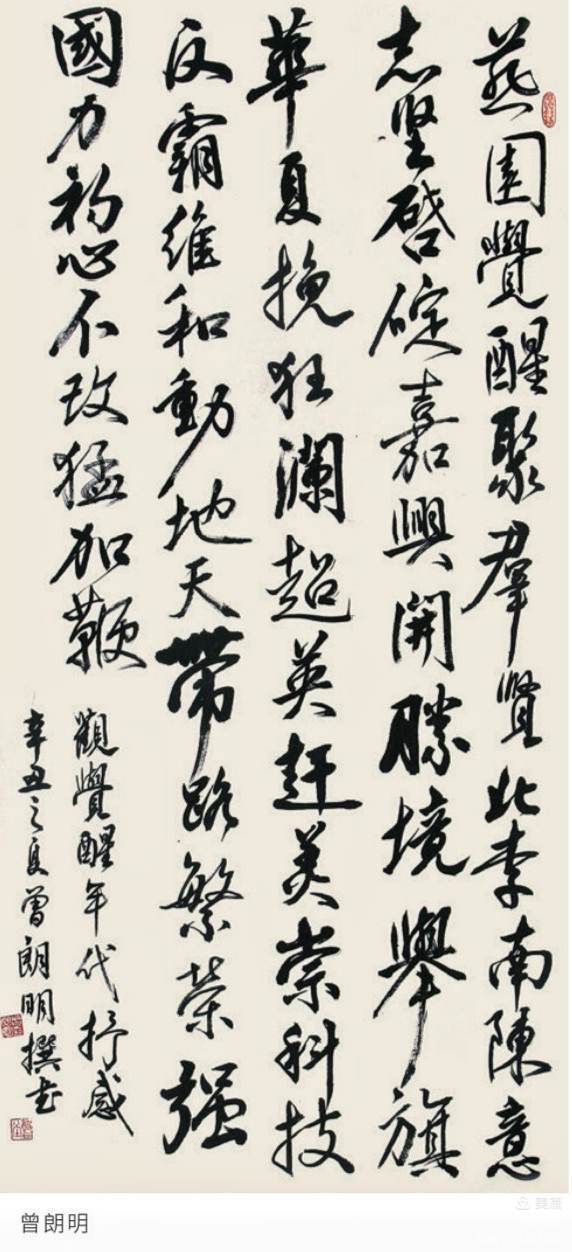 燕園覺醒聚羣賢北李南陳意
志坚啓碇嘉興開勝境舉旗
華夏挽狂瀾超英赶美崇科技
反霸維和動地天带路繁荣强
國力初心不改猛加鞭
觀覺醒年代抒感
辛丑之夏曾朗明撰书
曾朗明
美篇